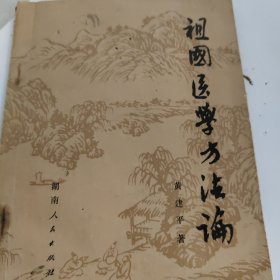 祖國医學方法論
黄建平著
湖南人民出版社